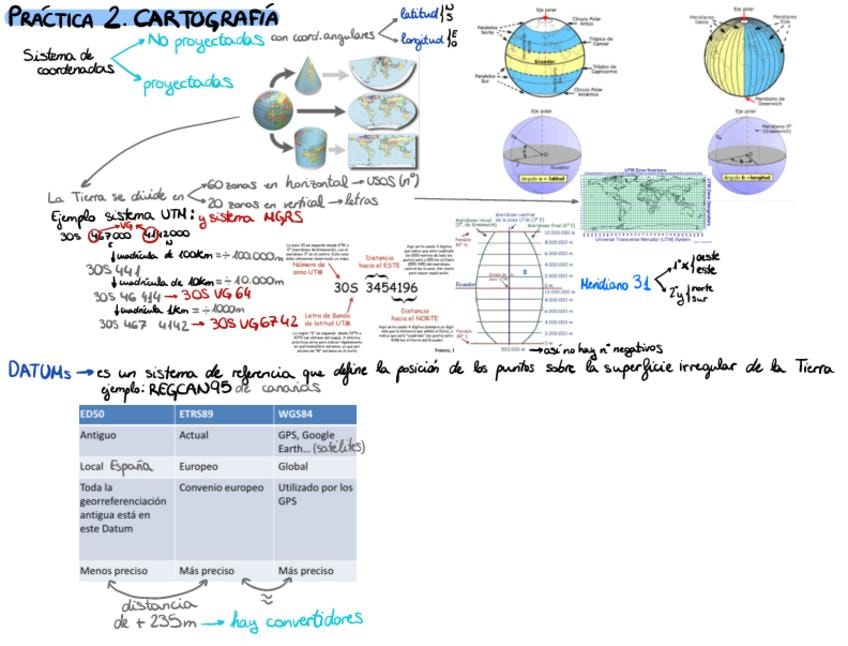 PRÁCTICA 2. CARTOGRAFÍA
Sistema de coordenadas
No proyectadas con coord. angulares
latitud N S
longitud E O
proyectadas
Eje polar
Paralelos Norte
Círculo Polar Ártico
Trópico de Cáncer
Ecuador
Trópico de Capricornio
Paralelos Sur
Círculo Polar Antártico
Eje polar
Meridianos Oeste
Meridianos Este
Meridiano de Greenwich
Eje polar
Ecuador
ángulo a = latitud
Eje polar
Meridiano 0º (Greenwich)
Ángulo b = longitud
La Tierra se divide en
60 zonas en horizontal → USOS (nº)
20 zonas en vertical → letras
UTM Zone Numbers
UTM Zone Designators
Universal Transverse Mercator (UTM) System
Ejemplo sistema UTM: y sistema MGRS
VG
30S 467000 4142000
E N
cuadrícula de 100km = ÷ 100.000m
30S 4 41
cuadrícula de 10km = ÷ 10.000m
30S 46 414 → 30S VG 64
cuadrícula 1km = ÷ 1000m
30S 467 4142 → 30S VG 67 42
Número de zona UTM
Distancia hacia el ESTE
30S 3454196
Letra de Banda de latitud UTM
Distancia hacia el NORTE
Meridiano inicial (0º, de Greenwich)
Meridiano central de la zona UTM (3º E)
Meridiano final (6º E)
10.000.000 m
8.000.000 m
6.000.000 m
4.000.000 m
2.000.000 m
Ecuador
0 m
10.000.000 m
8.000.000 m
6.000.000 m
4.000.000 m
2.000.000 m
500.000 m → así no hay nº negativos
Meridiano 31
1º x oeste este
2º y norte sur
DATUMs → es un sistema de referencia que define la posición de los puntos sobre la superficie irregular de la Tierra
ejemplo: REGCAN95 de canarias
ED50 ETRS89 WGS84
Antiguo Actual GPS, Google Earth... (satélites)
Local España Europeo Global
Toda la georreferenciación antigua está en este Datum Convenio europeo Utilizado por los GPS
Menos preciso Más preciso Más preciso
distancia de + 235m → hay convertidores
≈